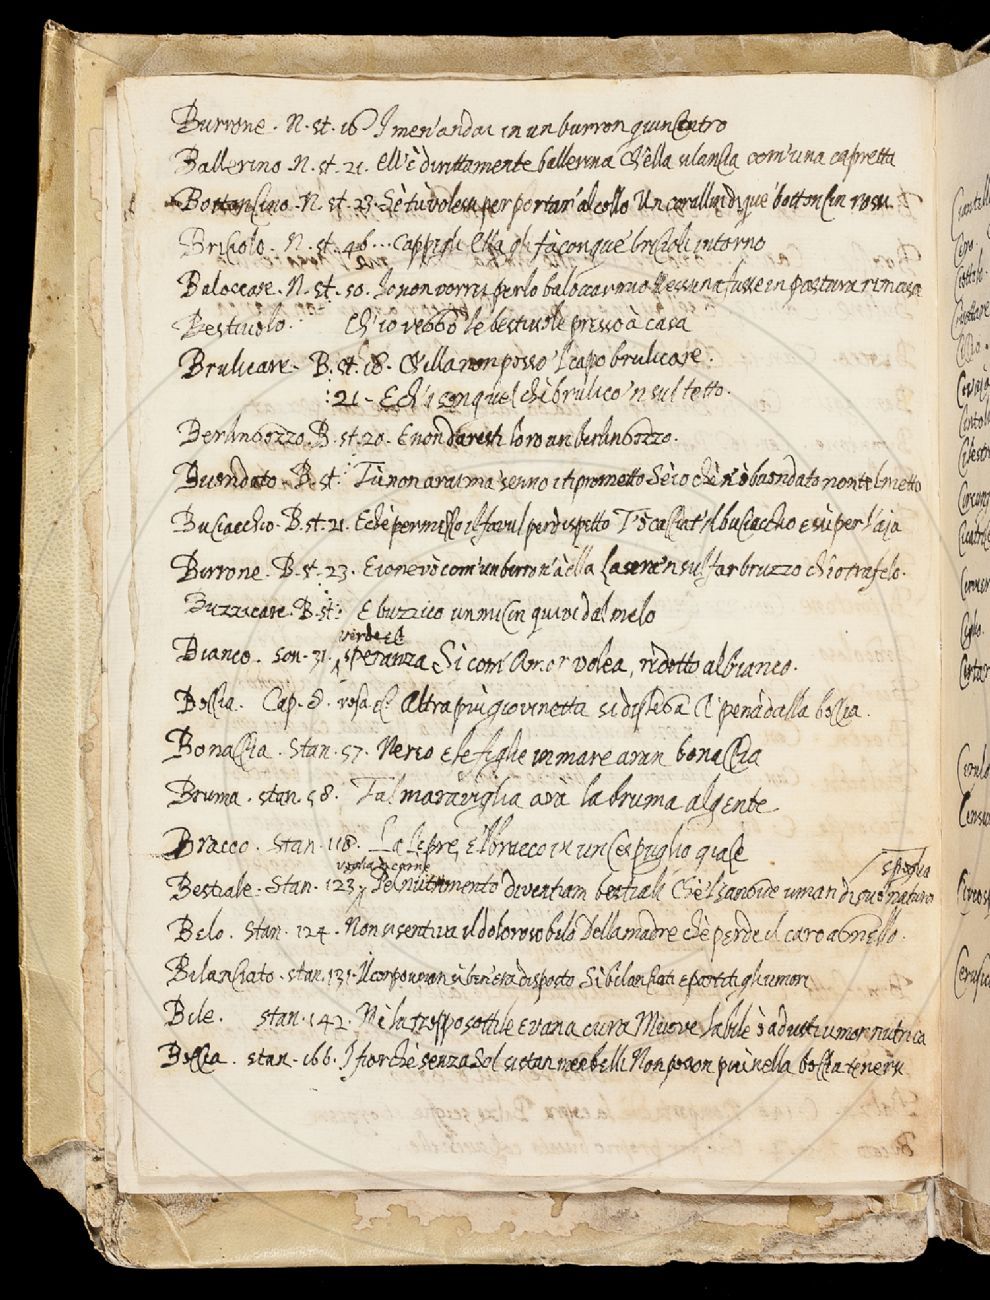 Burrone. N. st. 16 I men'andai in un burron quincentro
Ballerino. N. st. 21. Ell'è dirittamente ballerina Ch'ella si lancia com'una capretta
Bottoncino. N. st. 23. Sè tù volessi per portar' al collo Un corallin di que' bottoncin rossi
Briciolo. N. st. 46... cappegli Ella gli fà con que' bricioli intorno
Baloccare. N. st. 50. Io non vorrei perlo baloccar mio Nessuna fusse in pastura rimasa
Bestiuolo. Ch'io vebbo le bestiuole presso à casa
Brulicare. B. st. 18. Ch'ella non posso 'l capo brulicare.
21 - Ech'i son quel chè brulico 'n sul tetto.
Berlingozzo. B. st. 20. E non daresti loro un berlingozzo.
Buondato. B. st. Tù non arai mà' senno i ti prometto Sè ciò chè n'è buondato non te l'metto
Busiacchio. B. st. 21. Ed è per mezzo il favul per dispetto T'ò cacciat' il busiacchio e sù per l'aja
Birrone. B. st. 23. E io ne vò com'un birron' à ella La sera 'n sul far bruzzo ch'io trafelo.
Buzzicare. B. st. E buzzico un micin quivi dal melo
verde el
Bianco. son. 31. speranza Sì com' Amor volea, ridotto al bianco.
Boccia. Cap. 8. rosa el. Altra più giovinetta si disseba A' pena dalla boccia.
Bonaccia. Stan. 57. Nereo e le figlie in mare aran bonaccia
Bruma. stan. 58. Tal maraviglia avà la bruma algente
Bracco. Stan. 118. La lepre, e 'l bracco in un cespuglio giace
spoglia
voglia di carne
Bestiale. Stan. 123. Pel nutrimento diventiam bestiali Chè 'l sangue uman di suo natura
Belo. Stan. 124. Non si sentiva il doloroso belo Della madre chè perde il caro agnello.
Bilanciato. stan. 131. Il corpo uman sì ben' era disposto Sì bilanciati e partiti gli umori
Bile. stan. 142. Nè la troppo sottile e vana cura Muove la bile è adusti umor nutrica
Boccia. stan. 166. I fior chè senza Sol si stan men belli Non posson più nella boccia tenersi